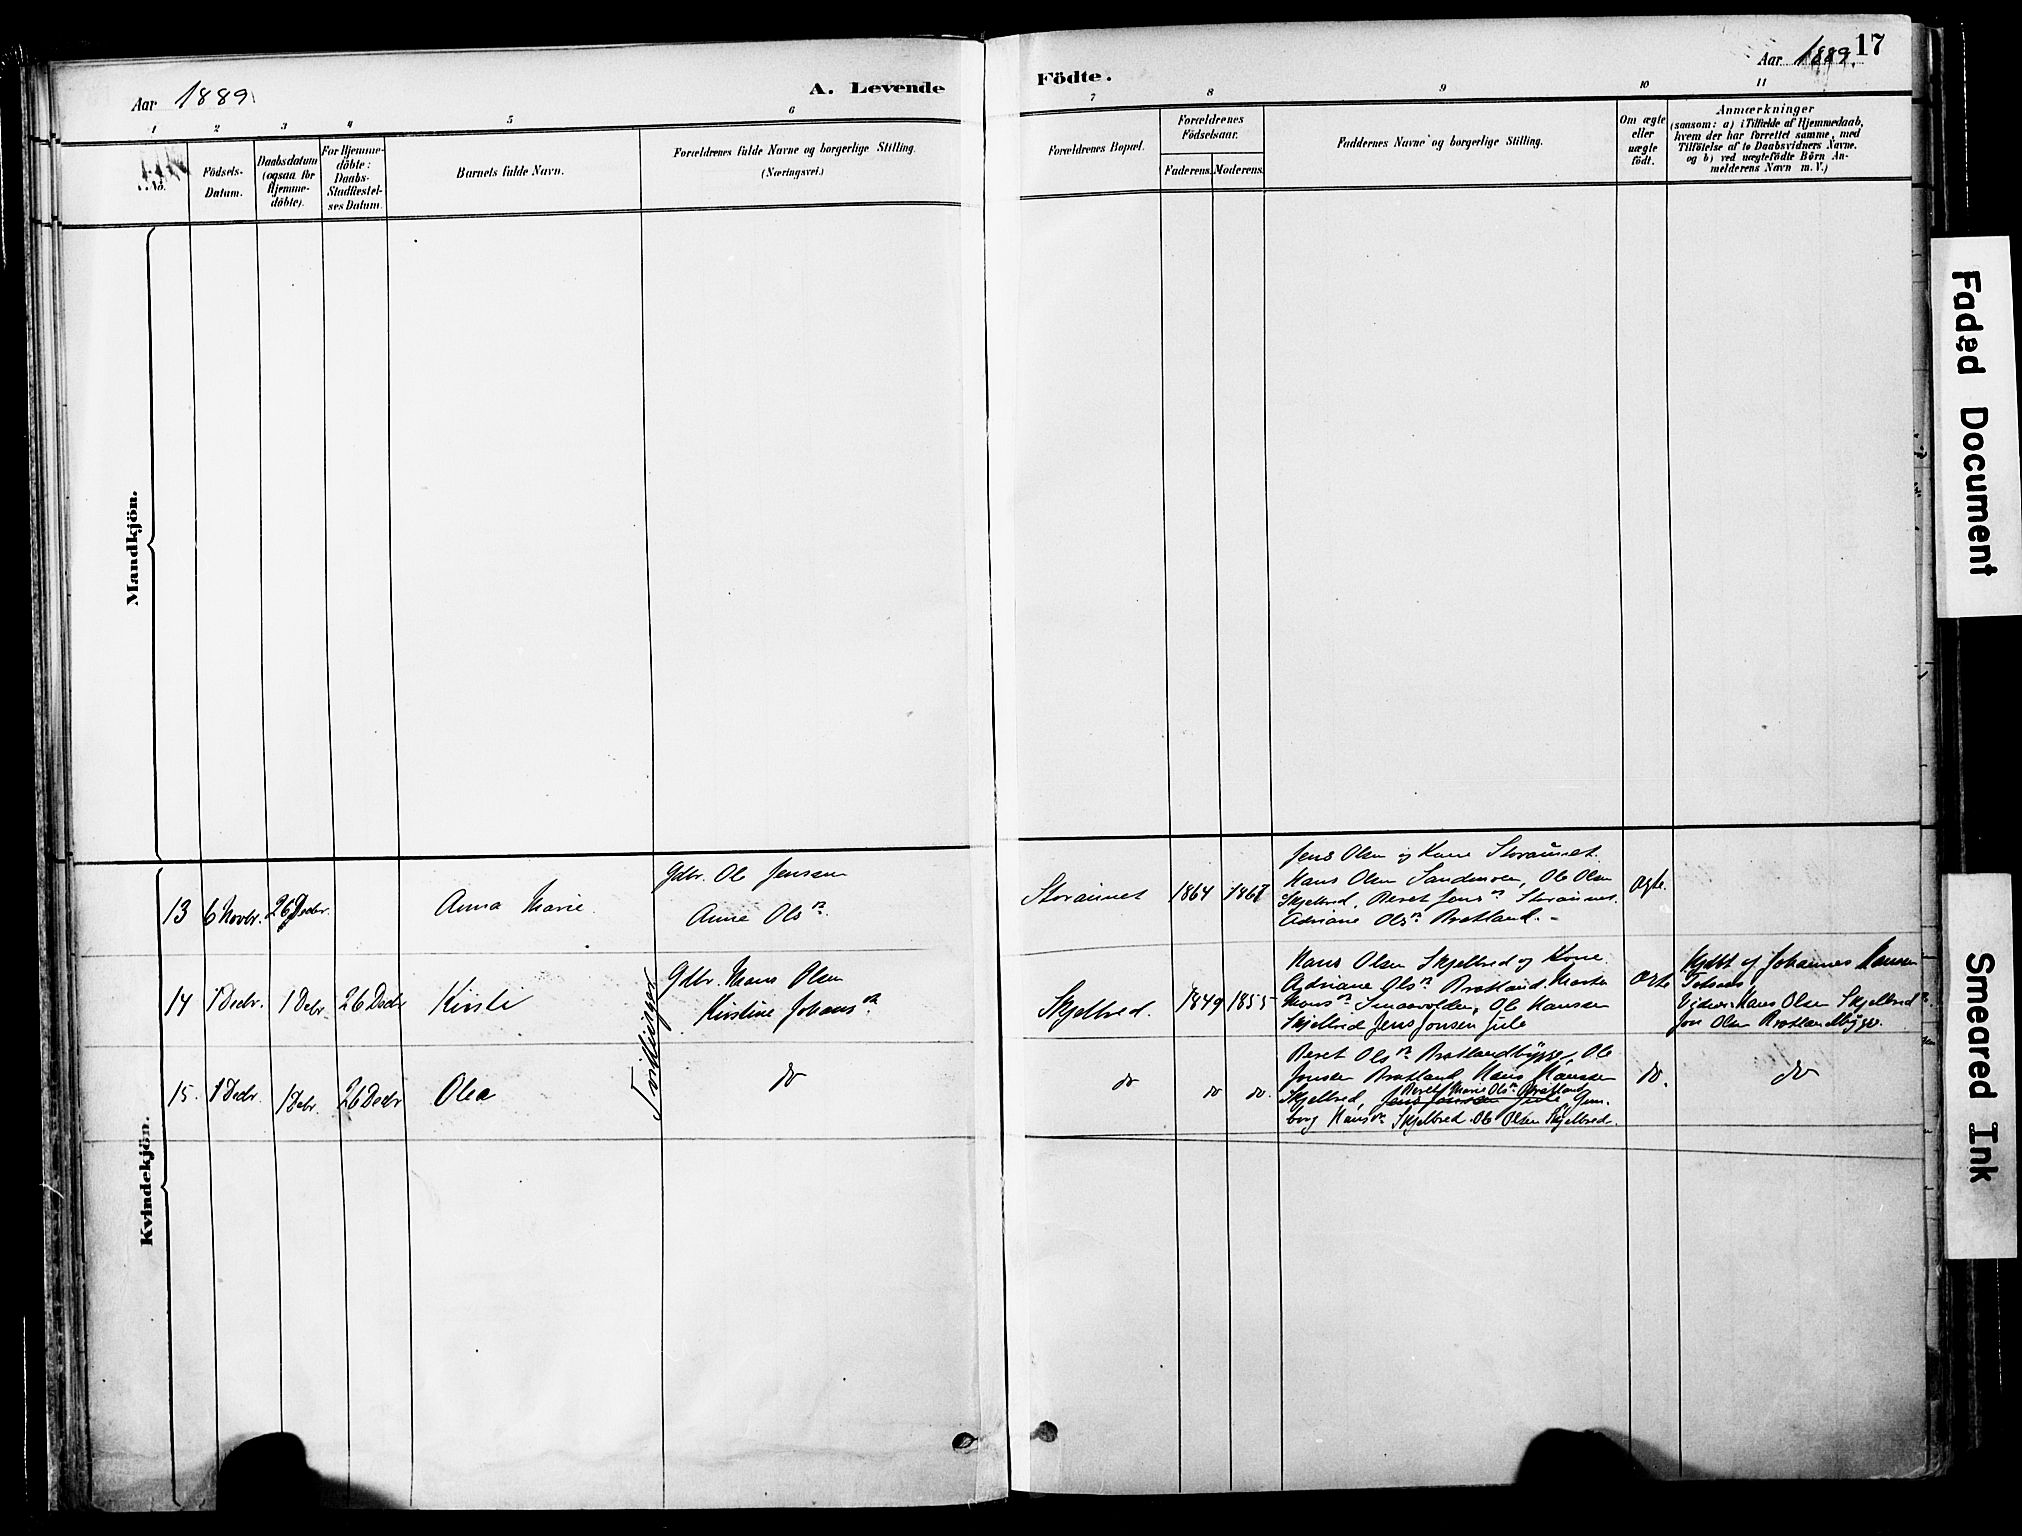 Aar 1889
A. Levende
Födte.
Aar 1889.
17
1 2 3 4 5 6 7 8 9 10 11
No.
Födsels-
Datum.
Daabsdatum
(ogsaa for
Hjemme-
döbte).
For Hjemme-
döbte:
Daabs-
Stadfæstel-
ses Datum.
Barnets fulde Navn.
Forældrenes fulde Navne og borgerlige Stilling.
(Næringsvei.)
Forældrenes Bopæl.
Forældrenes
Födselsaar.
Faderens. Moderens.
Faddernes Navne og borgerlige Stilling.
Om ægte
eller
uægte
födt.
Anmærkninger
(saasom: a) i Tilfælde af Hjemmedaab,
hvem der har forrettet samme, med
Tilföielse af to Daabsvidners Navne,
og b) ved uægtefödte Börn An-
melderens Navn m. V.)
Mandkjön.
Kvindekjön.
13 6 Novbr. 26 Decbr. Anna Marie.
Gdbr. Ole Jensen
Anne Olsn.
Storaunet 1864 1867
Jens Olsen og Kone Storaunet.
Hans Olsen Sandmoen, Ole Olsen
Skjelbred, Beret Jensn Storaunet.
Adriane Olsn Bratland. -
Ægte.
14 1 Decbr. 1 Debr. 26 Decbr Kirsti
Tvillinger
Gdbr. Hans Olsen
Kirstine Johansn.
Skjelbred. 1849 1855
Hans Olsen Skjelbred og Kone.
Adriane Olsn Bratland, Marta
Hansn Smaavolden, Ole Hansen
Skjelbred Jens Jonsen Jule
Ægte
Hjdbt af Johannes Hansen
Vidner: Hans Olsen Skjelbred
Jon Olsen Bratlandbygge.
15. 1 Decbr. 1 Debr. 26 Decbr Olea
do
do do do.
Beret Olsn Bratlandbygge, Ole
Jonsen Bratland, Hans Hansen
Beret Marie Olsn Bratland
Skjelbred, Jens Jonsen Jule, Gun-
borg Hansn Skjelbred. Ole Olsen Skjelbred.
do.
do
Faded Document
Smeared Ink